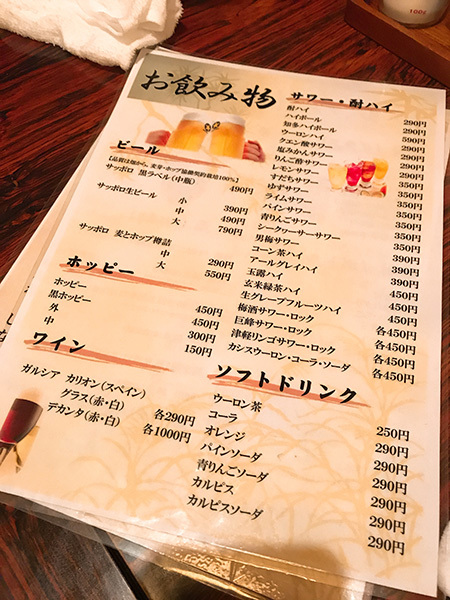 お飲み物
ビール
【品質は畑から。麦芽・ホップ協働契約栽培100%】
サッポロ 黒ラベル(中瓶) 490円
サッポロ生ビール 小 390円
中 490円
大 790円
サッポロ 麦とホップ樽詰
中 290円
大 550円
ホッピー
ホッピー 450円
黒ホッピー 450円
外 300円
中 150円
ワイン
ガルシア カリオン(スペイン)
グラス(赤・白) 各290円
デカンタ(赤・白) 各1000円
サワー・酎ハイ
酎ハイ 290円
ハイボール 290円
知多ハイボール 590円
ウーロンハイ 290円
クエン酸サワー 350円
塩みかんサワー 350円
りんご酢サワー 350円
レモンサワー 350円
すだちサワー 350円
ゆずサワー 350円
ライムサワー 350円
パインサワー 350円
青りんごサワー 350円
シークヮーサーサワー 350円
男梅サワー
コーン茶ハイ 390円
アールグレイハイ 390円
玉露ハイ
玄米緑茶ハイ
生グレープフルーツハイ 450円
梅酒サワー・ロック 各450円
巨峰サワー・ロック 各450円
津軽リンゴサワー・ロック 各450円
カシスウーロン・コーラ・ソーダ 各450円
ソフトドリンク
ウーロン茶 250円
コーラ 290円
オレンジ 290円
パインソーダ 290円
青りんごソーダ 290円
カルピス 290円
カルピスソーダ 290円